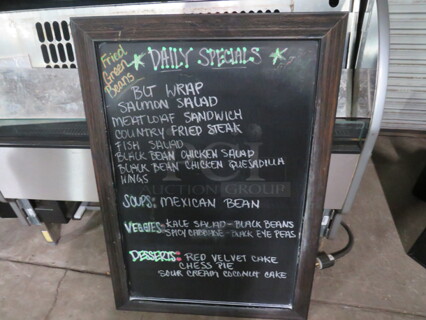 Fried
Green
Beans
* DAILY SPECIALS *
BLT WRAP
SALMON SALAD
MEATLOAF SANDWICH
COUNTRY FRIED STEAK
FISH SALAD
BLACK BEAN CHICKEN SALAD
BLACK BEAN CHICKEN QUESADILLA
WINGS
AUCTION GROUP
SOUPS: MEXICAN BEAN
VEGGIES: KALE SALAD - BLACK BEANS
CABBAGE - BLACK EYE PEAS
DESSERTS: RED VELVET CAKE
CHESS PIE
SOUR CREAM COCONUT CAKE